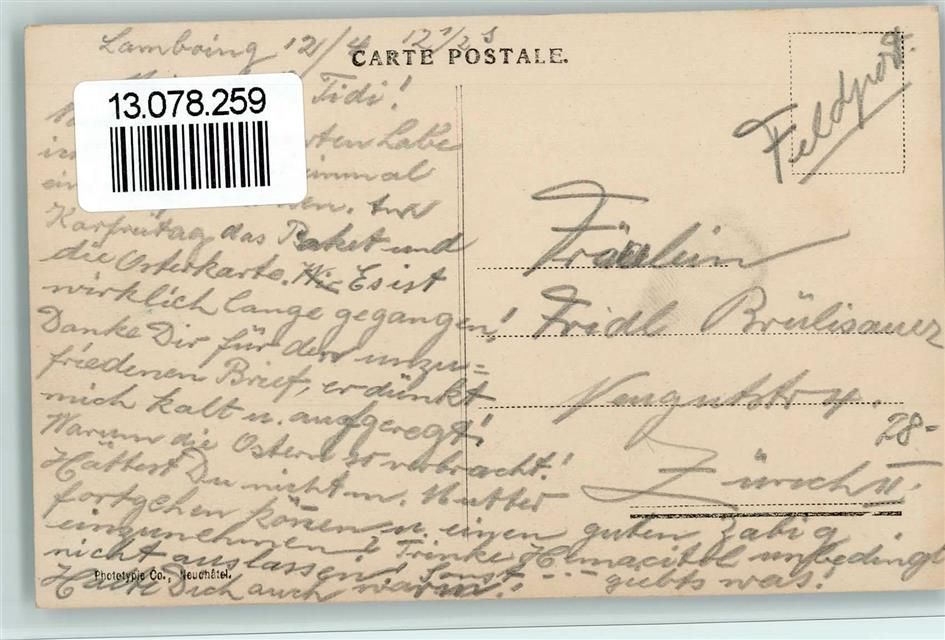 Lamboing 12/4 12 1/2 s
CARTE POSTALE.
Feldpost.
13.078.259
Tidi!
Labe
einmal
Karfreitag das Paket und
die Osterkarte. Wir Es ist
wirklich lange gegangen!
Danke Dir für den unzu=
friedenen Brief, er dünkt
mich kalt u. aufgeregt!
Warum die Ostern so verbracht!
Hättest Du nicht m. Mutter
fortgehen können u. einen guten Zabig
einzunehmen? Trinke unbedingt
nicht auslassen! Sonst giebts was!
Halte Dich auch warm!
Fräulein
Fridl Brülisauer
Neugutstr 4.
28-
Zürich II.
Phototypie Co., Neuchâtel.